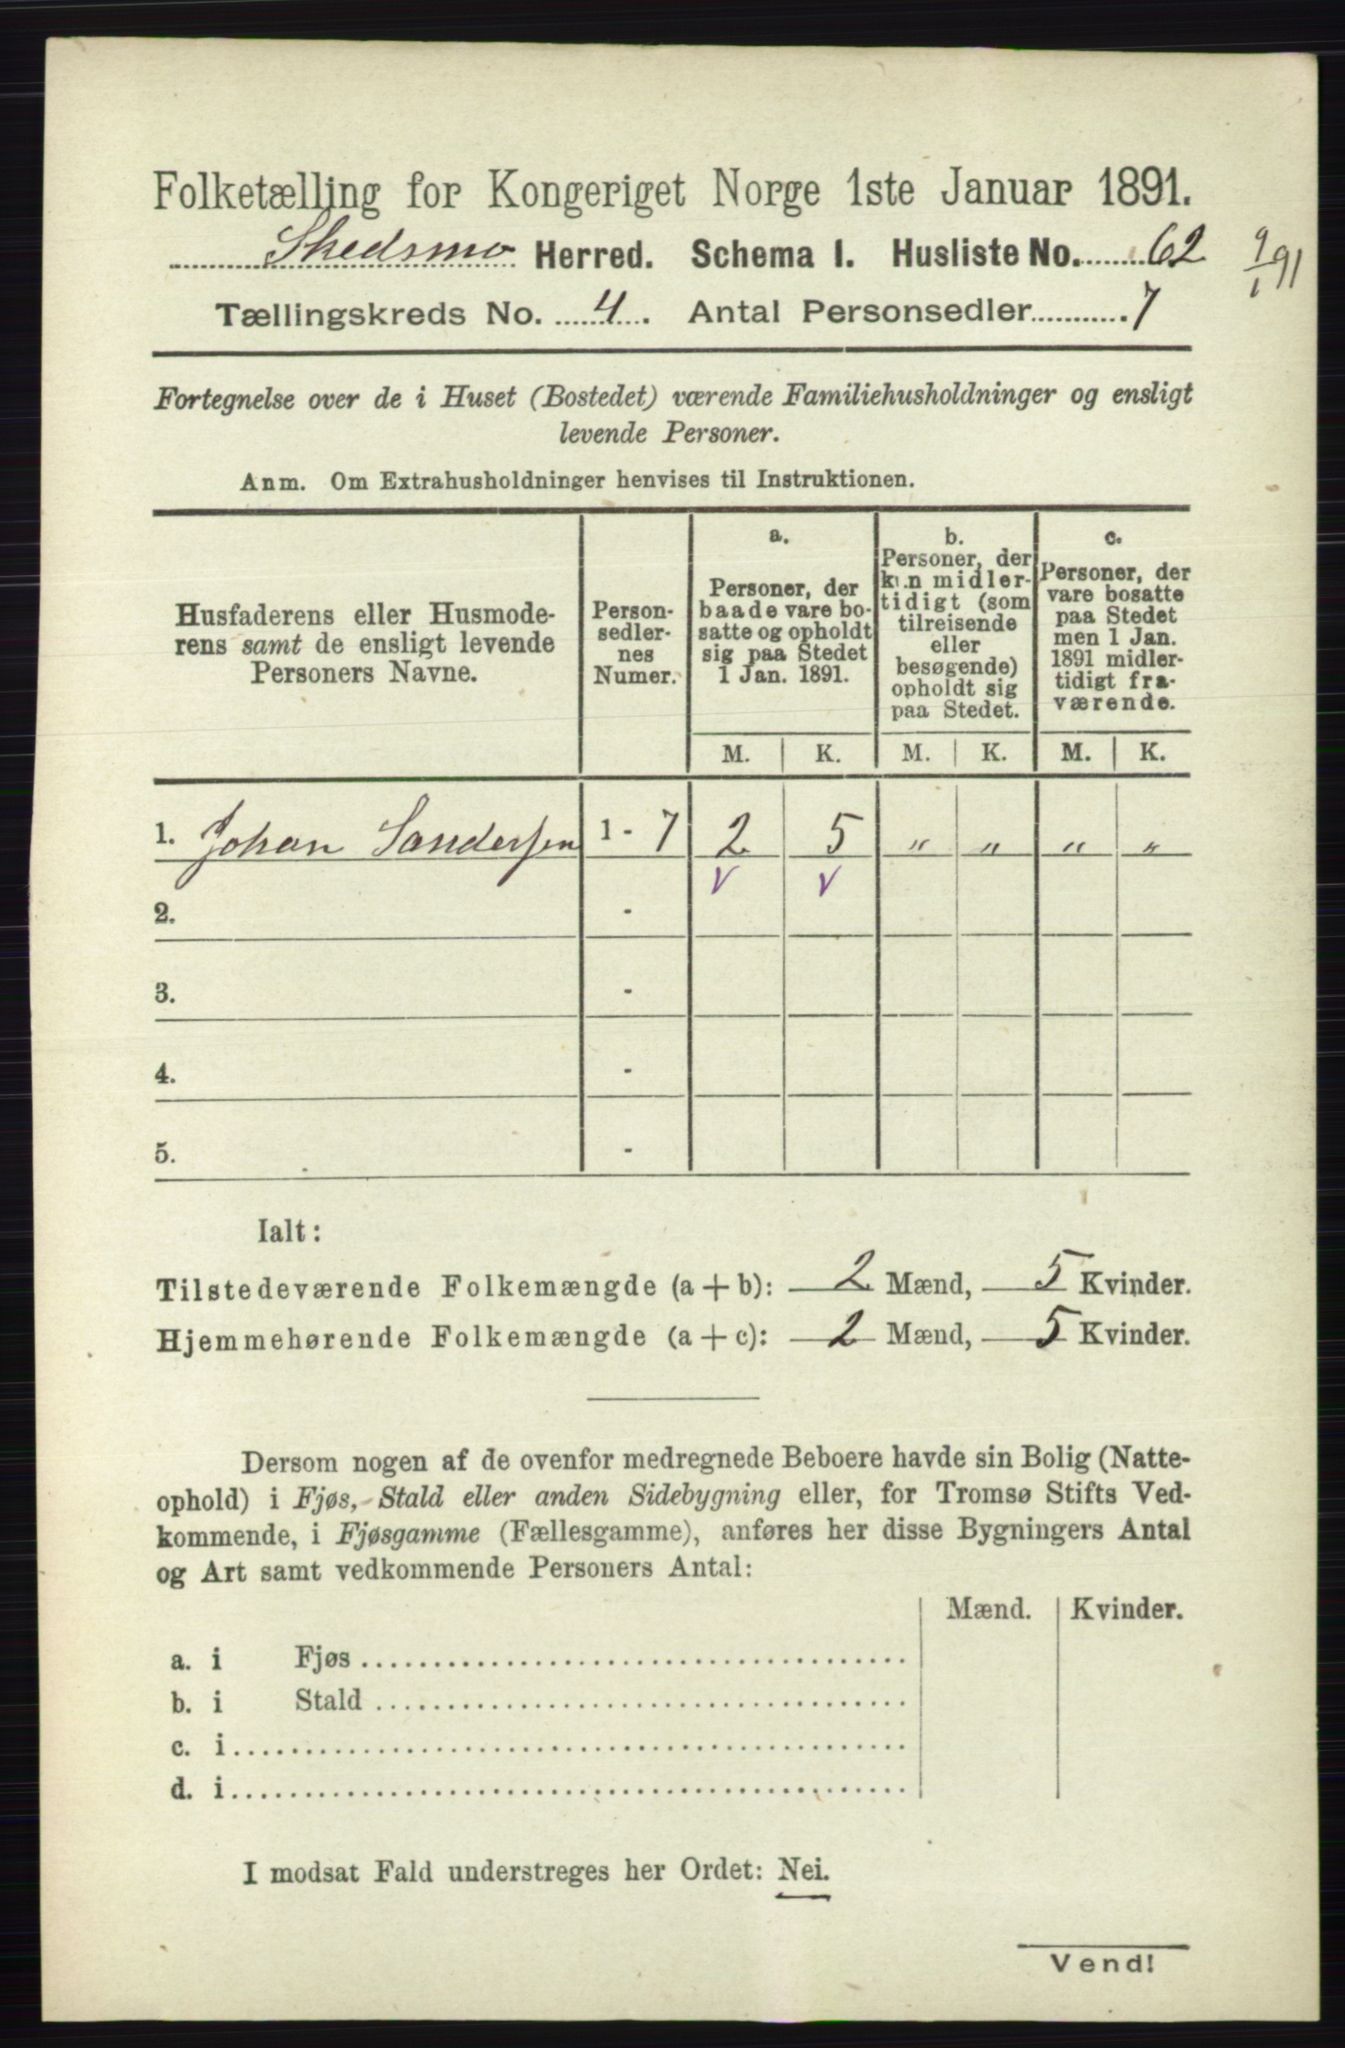 Folketælling for Kongeriget Norge 1ste Januar 1891.
Skedsmo Herred. Schema I. Husliste No. 62 9/1 91
Tællingskreds No. 4. Antal Personsedler 7
Fortegnelse over de i Huset (Bostedet) værende Familiehusholdninger og ensligt
levende Personer.
Anm. Om Extrahusholdninger henvises til Instruktionen.
Husfaderens eller Husmode-
rens samt de ensligt levende
Personers Navne.
Person-
sedler-
nes
Numer.
a.
Personer, der
baade vare bo-
satte og opholdt
sig paa Stedet
1 Jan. 1891.
b.
Personer, der
kun midler-
tidigt (som
tilreisende
eller
besøgende)
opholdt sig
paa Stedet.
c.
Personer, der
vare bosatte
paa Stedet
men 1 Jan.
1891 midler-
tidigt fra-
værende.
M. K. M. K. M. K.
1. Johan Sandersen 1 - 7 2 5 „ „ „ „
v v
2. -
3. -
4. -
5. -
Ialt:
Tilstedeværende Folkemængde (a + b): 2 Mænd, 5 Kvinder.
Hjemmehørende Folkemængde (a + c): 2 Mænd, 5 Kvinder.
Dersom nogen af de ovenfor medregnede Beboere havde sin Bolig (Natte-
ophold) i Fjøs, Stald eller anden Sidebygning eller, for Tromsø Stifts Ved-
kommende, i Fjøsgamme (Fællesgamme), anføres her disse Bygningers Antal
og Art samt vedkommende Personers Antal:
Mænd. Kvinder.
a. i Fjøs
b. i Stald
c. i
d. i
I modsat Fald understreges her Ordet: Nei.
Vend!